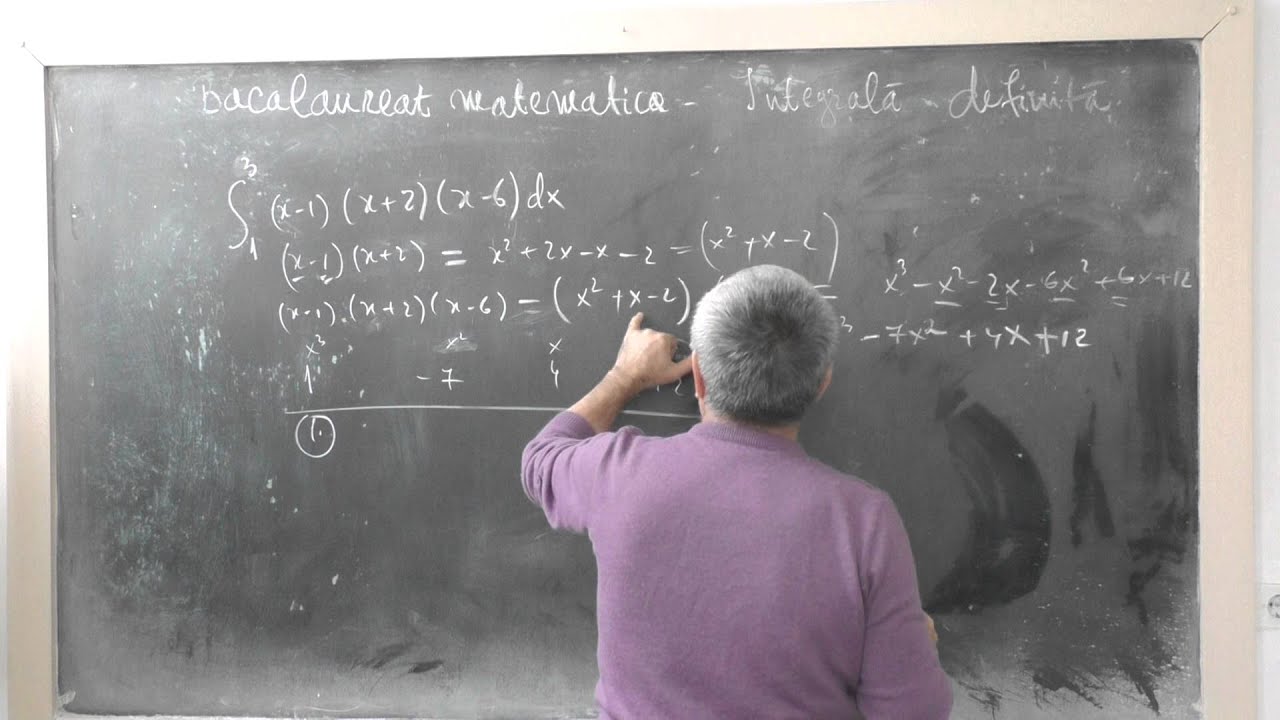 Bacalaureat matematica - Integrală definită
∫₁³ (x-1)(x+2)(x-6)dx
(x-1)(x+2) = x²+2x-x-2 = (x²+x-2)
(x-1).(x+2)(x-6) = (x²+x-2) x³-x²-2x-6x²+6x+12
-7x²+4x+12
x³ x² x
1 -7 4
1.